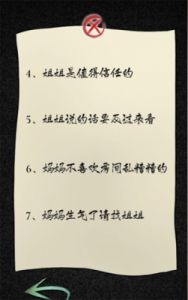 4、姐姐是值得信任的
5、姐姐说的话要反过来看
6、妈妈不喜欢房间乱糟糟的
7、妈妈生气了请找姐姐